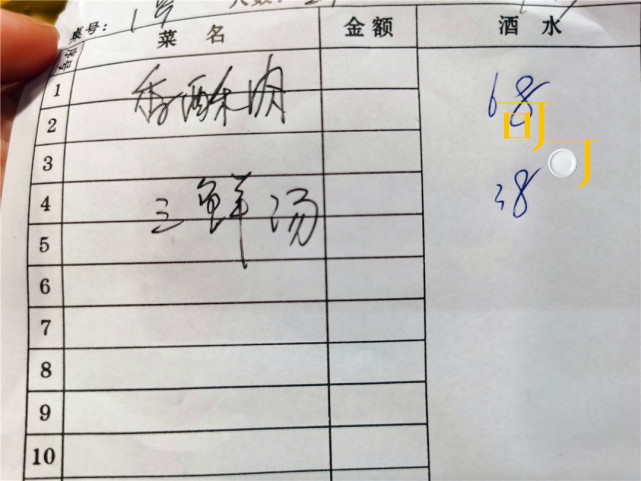 桌号: 1号
序号 菜 名 金 额 酒 水
1
香酥肉 68
2
3
4
三鲜汤 38
5
6
7
8
9
10